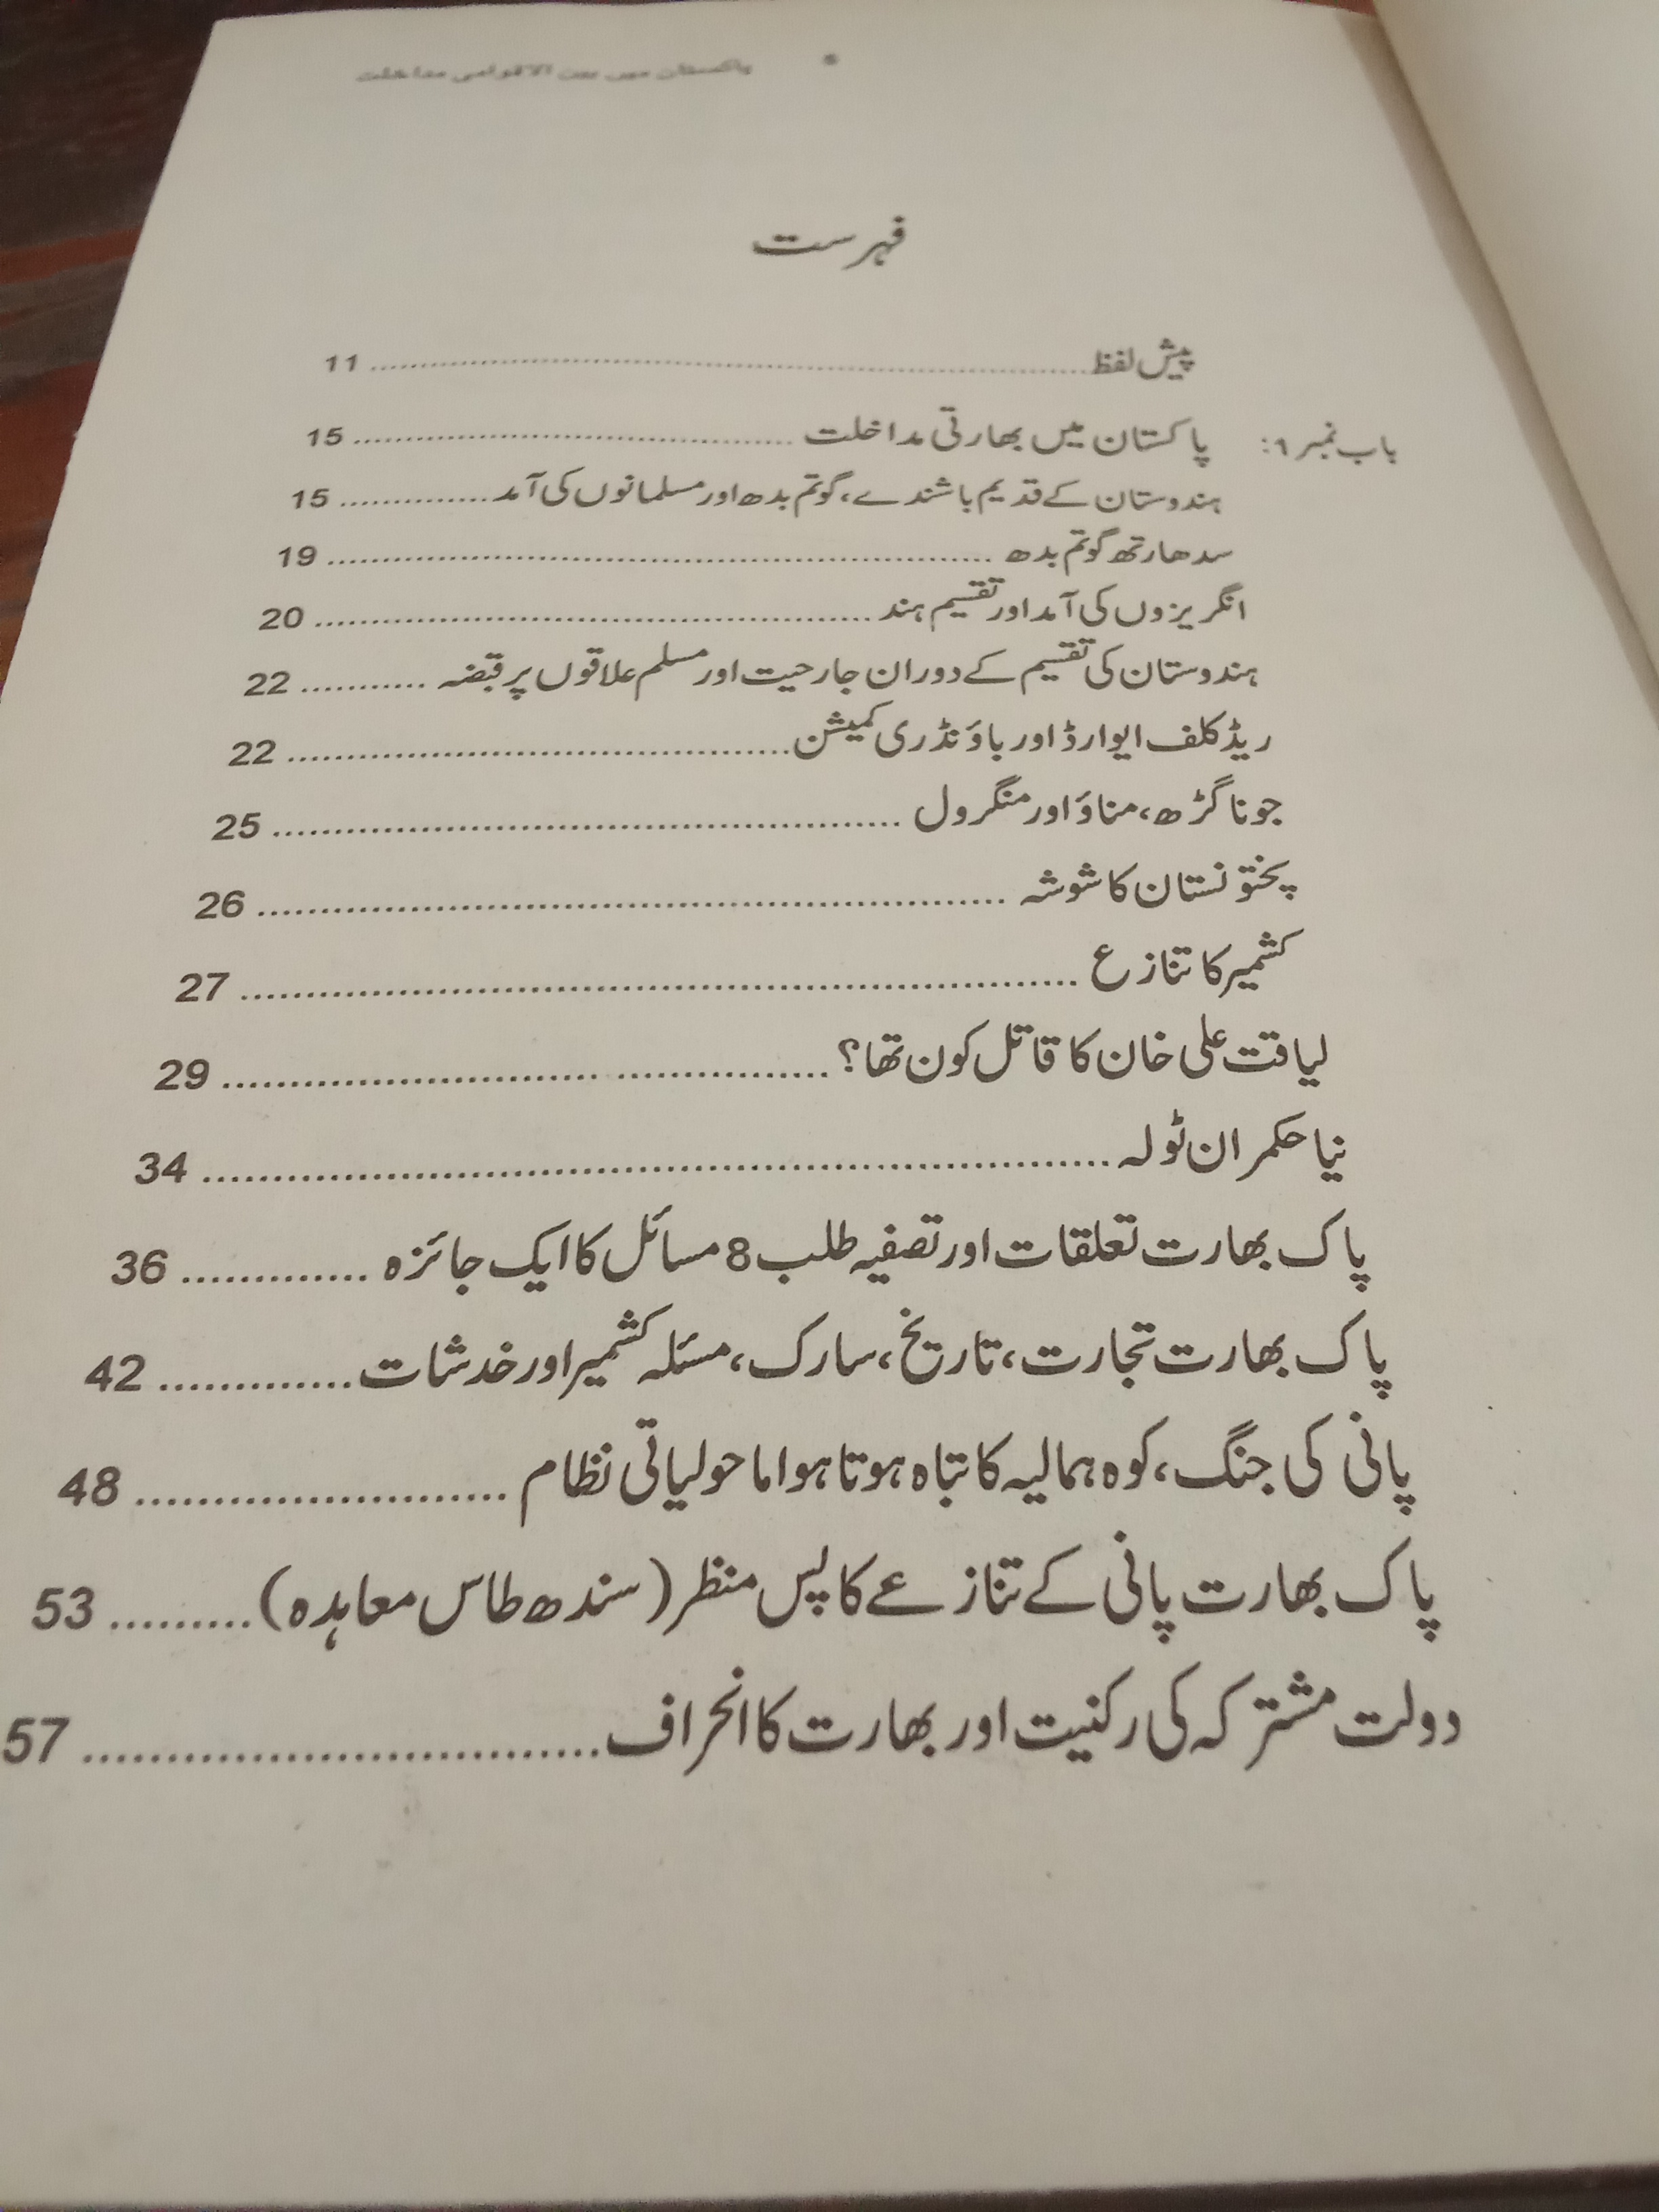 پاکستان میں بین الاقوامی مداخلت
فہرست
پیش لفظ ........ 11
باب نمبر ۱: پاکستان میں بھارتی مداخلت ........ 15
ہندوستان کے قدیم باشندے، گوتم بدھ اور مسلمانوں کی آمد ........ 15
سدھارتھ گوتم بدھ ........ 19
انگریزوں کی آمد اور تقسیم ہند ........ 20
ہندوستان کی تقسیم کے دوران جارحیت اور مسلم علاقوں پر قبضہ ........ 22
ریڈ کلف ایوارڈ اور باؤنڈری کمیشن ........ 22
جونا گڑھ، مناؤ اور منگرول ........ 25
پختونستان کا شوشہ ........ 26
کشمیر کا تنازع ........ 27
لیاقت علی خان کا قاتل کون تھا؟ ........ 29
نیا حکمران ٹولہ ........ 34
پاک بھارت تعلقات اور تصفیہ طلب 8 مسائل کا ایک جائزہ ........ 36
پاک بھارت تجارت، تاریخ، سارک، مسئلہ کشمیر اور خدشات ........ 42
پانی کی جنگ، کوہ ہمالیہ کا تباہ ہوتا ہوا ماحولیاتی نظام ........ 48
پاک بھارت پانی کے تنازعے کا پس منظر (سندھ طاس معاہدہ) ........ 53
دولت مشترکہ کی رکنیت اور بھارت کا انحراف ........ 57